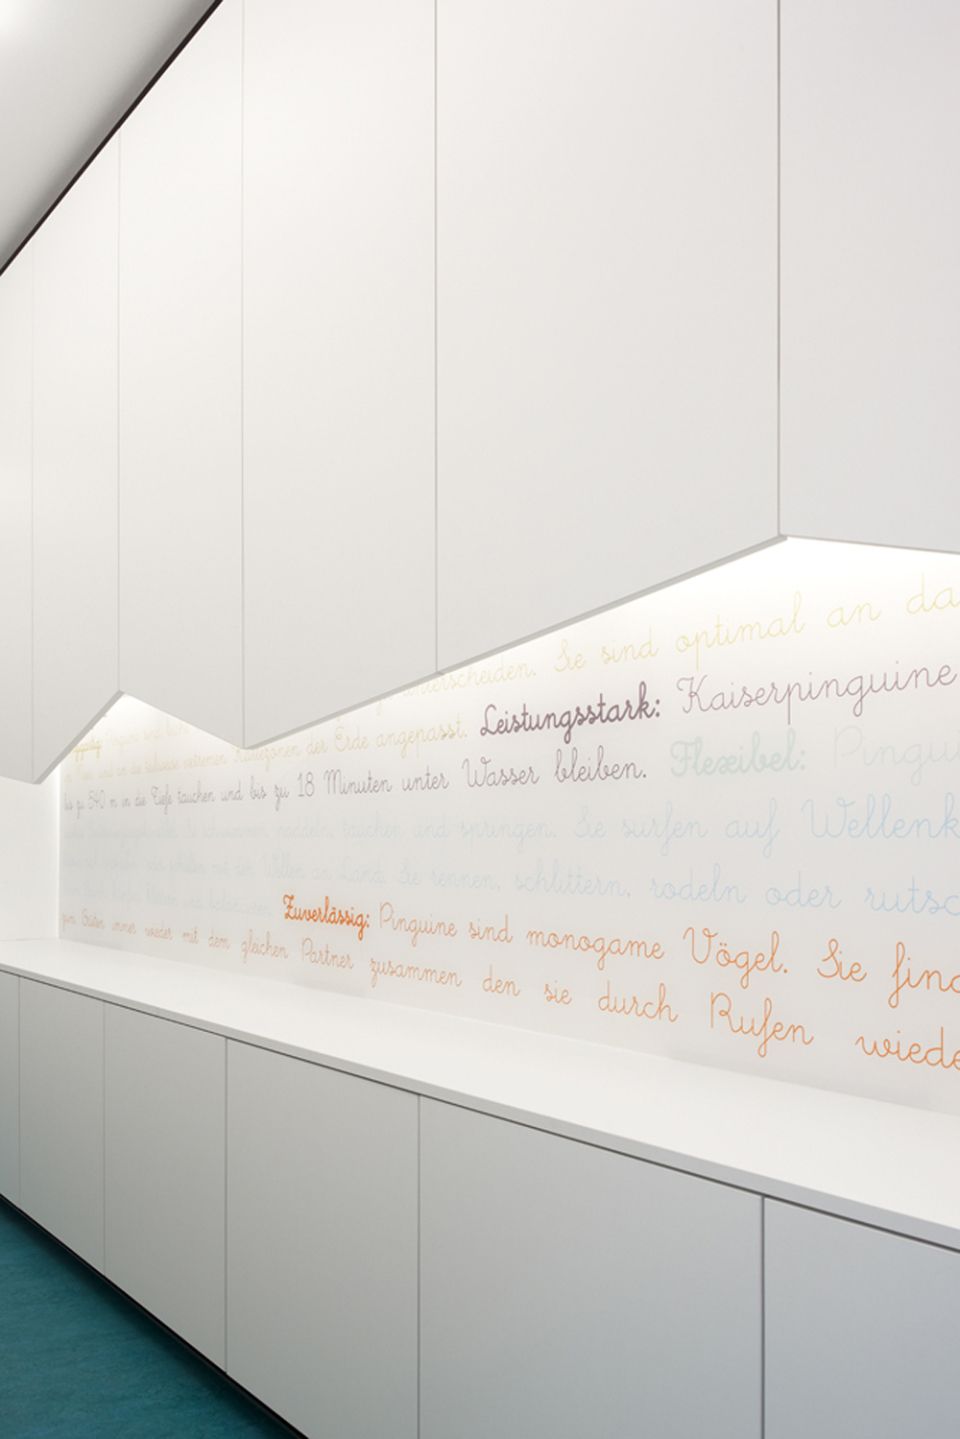 unterscheiden. Sie sind optimal an da
Kältezonen der Erde angepasst. Leistungsstark: Kaiserpinguine
bis zu 540 m in die Tiefe tauchen und bis zu 18 Minuten unter Wasser bleiben. Flexibel: Pingui
tauchen und springen. Sie surfen auf Wellenk
mit den Wellen an Land. Sie rennen, schlittern, rodeln oder rutsc
Zuverlässig: Pinguine sind monogame Vögel. Sie find
zum Brüten immer wieder mit dem gleichen Partner zusammen den sie durch Rufen wiede